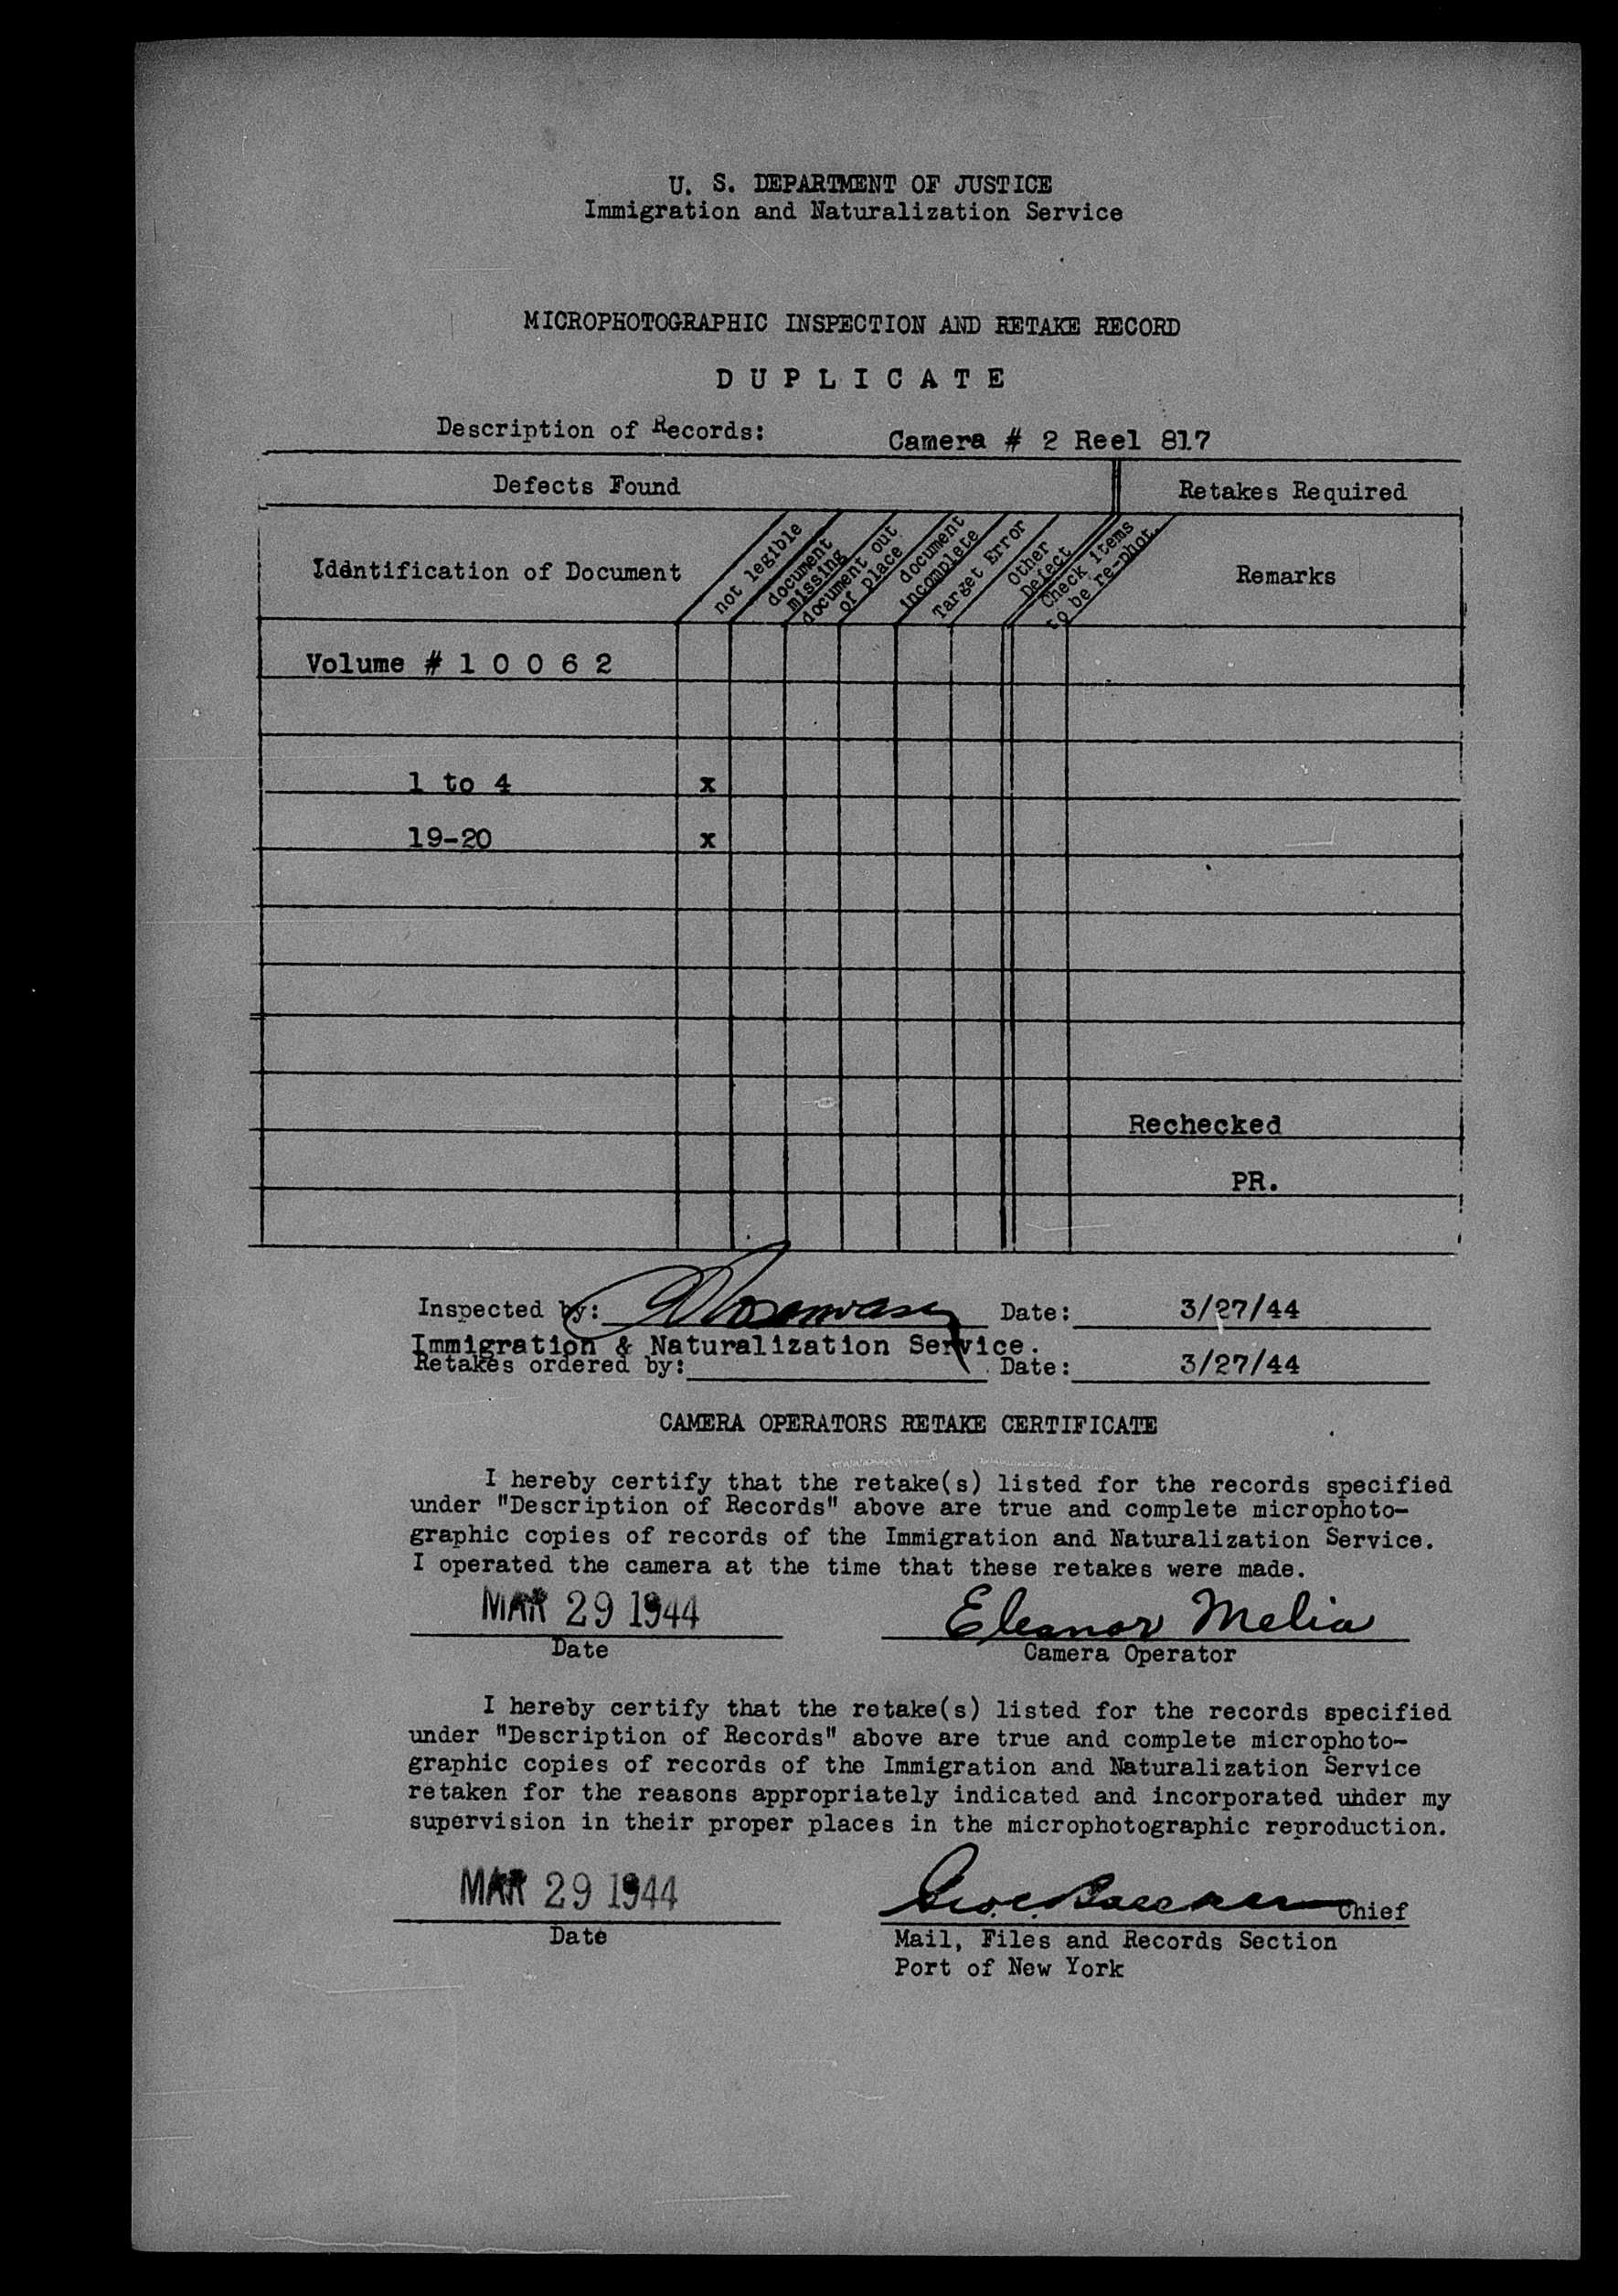 U. S. DEPARTMENT OF JUSTICE
Immigration and Naturalization Service
MICROPHOTOGRAPHIC INSPECTION AND RETAKE RECORD
D U P L I C A T E
Description of Records: Camera # 2 Reel 817
Defects Found Retakes Required
Identification of Document
not legible
document missing
document out of place
document incomplete
Target Error
Other Defect
Check items to be re-phot.
Remarks
Volume # 1 0 0 6 2
1 to 4 x
19-20 x
Rechecked
PR.
Inspected by: Date: 3/27/44
Immigration & Naturalization Service.
Retakes ordered by: Date: 3/27/44
CAMERA OPERATORS RETAKE CERTIFICATE
I hereby certify that the retake(s) listed for the records specified
under "Description of Records" above are true and complete microphoto-
graphic copies of records of the Immigration and Naturalization Service.
I operated the camera at the time that these retakes were made.
MAR 29 1944 Eleanor Melia
Date Camera Operator
I hereby certify that the retake(s) listed for the records specified
under "Description of Records" above are true and complete microphoto-
graphic copies of records of the Immigration and Naturalization Service
retaken for the reasons appropriately indicated and incorporated under my
supervision in their proper places in the microphotographic reproduction.
MAR 29 1944 Chief
Date Mail, Files and Records Section
Port of New York